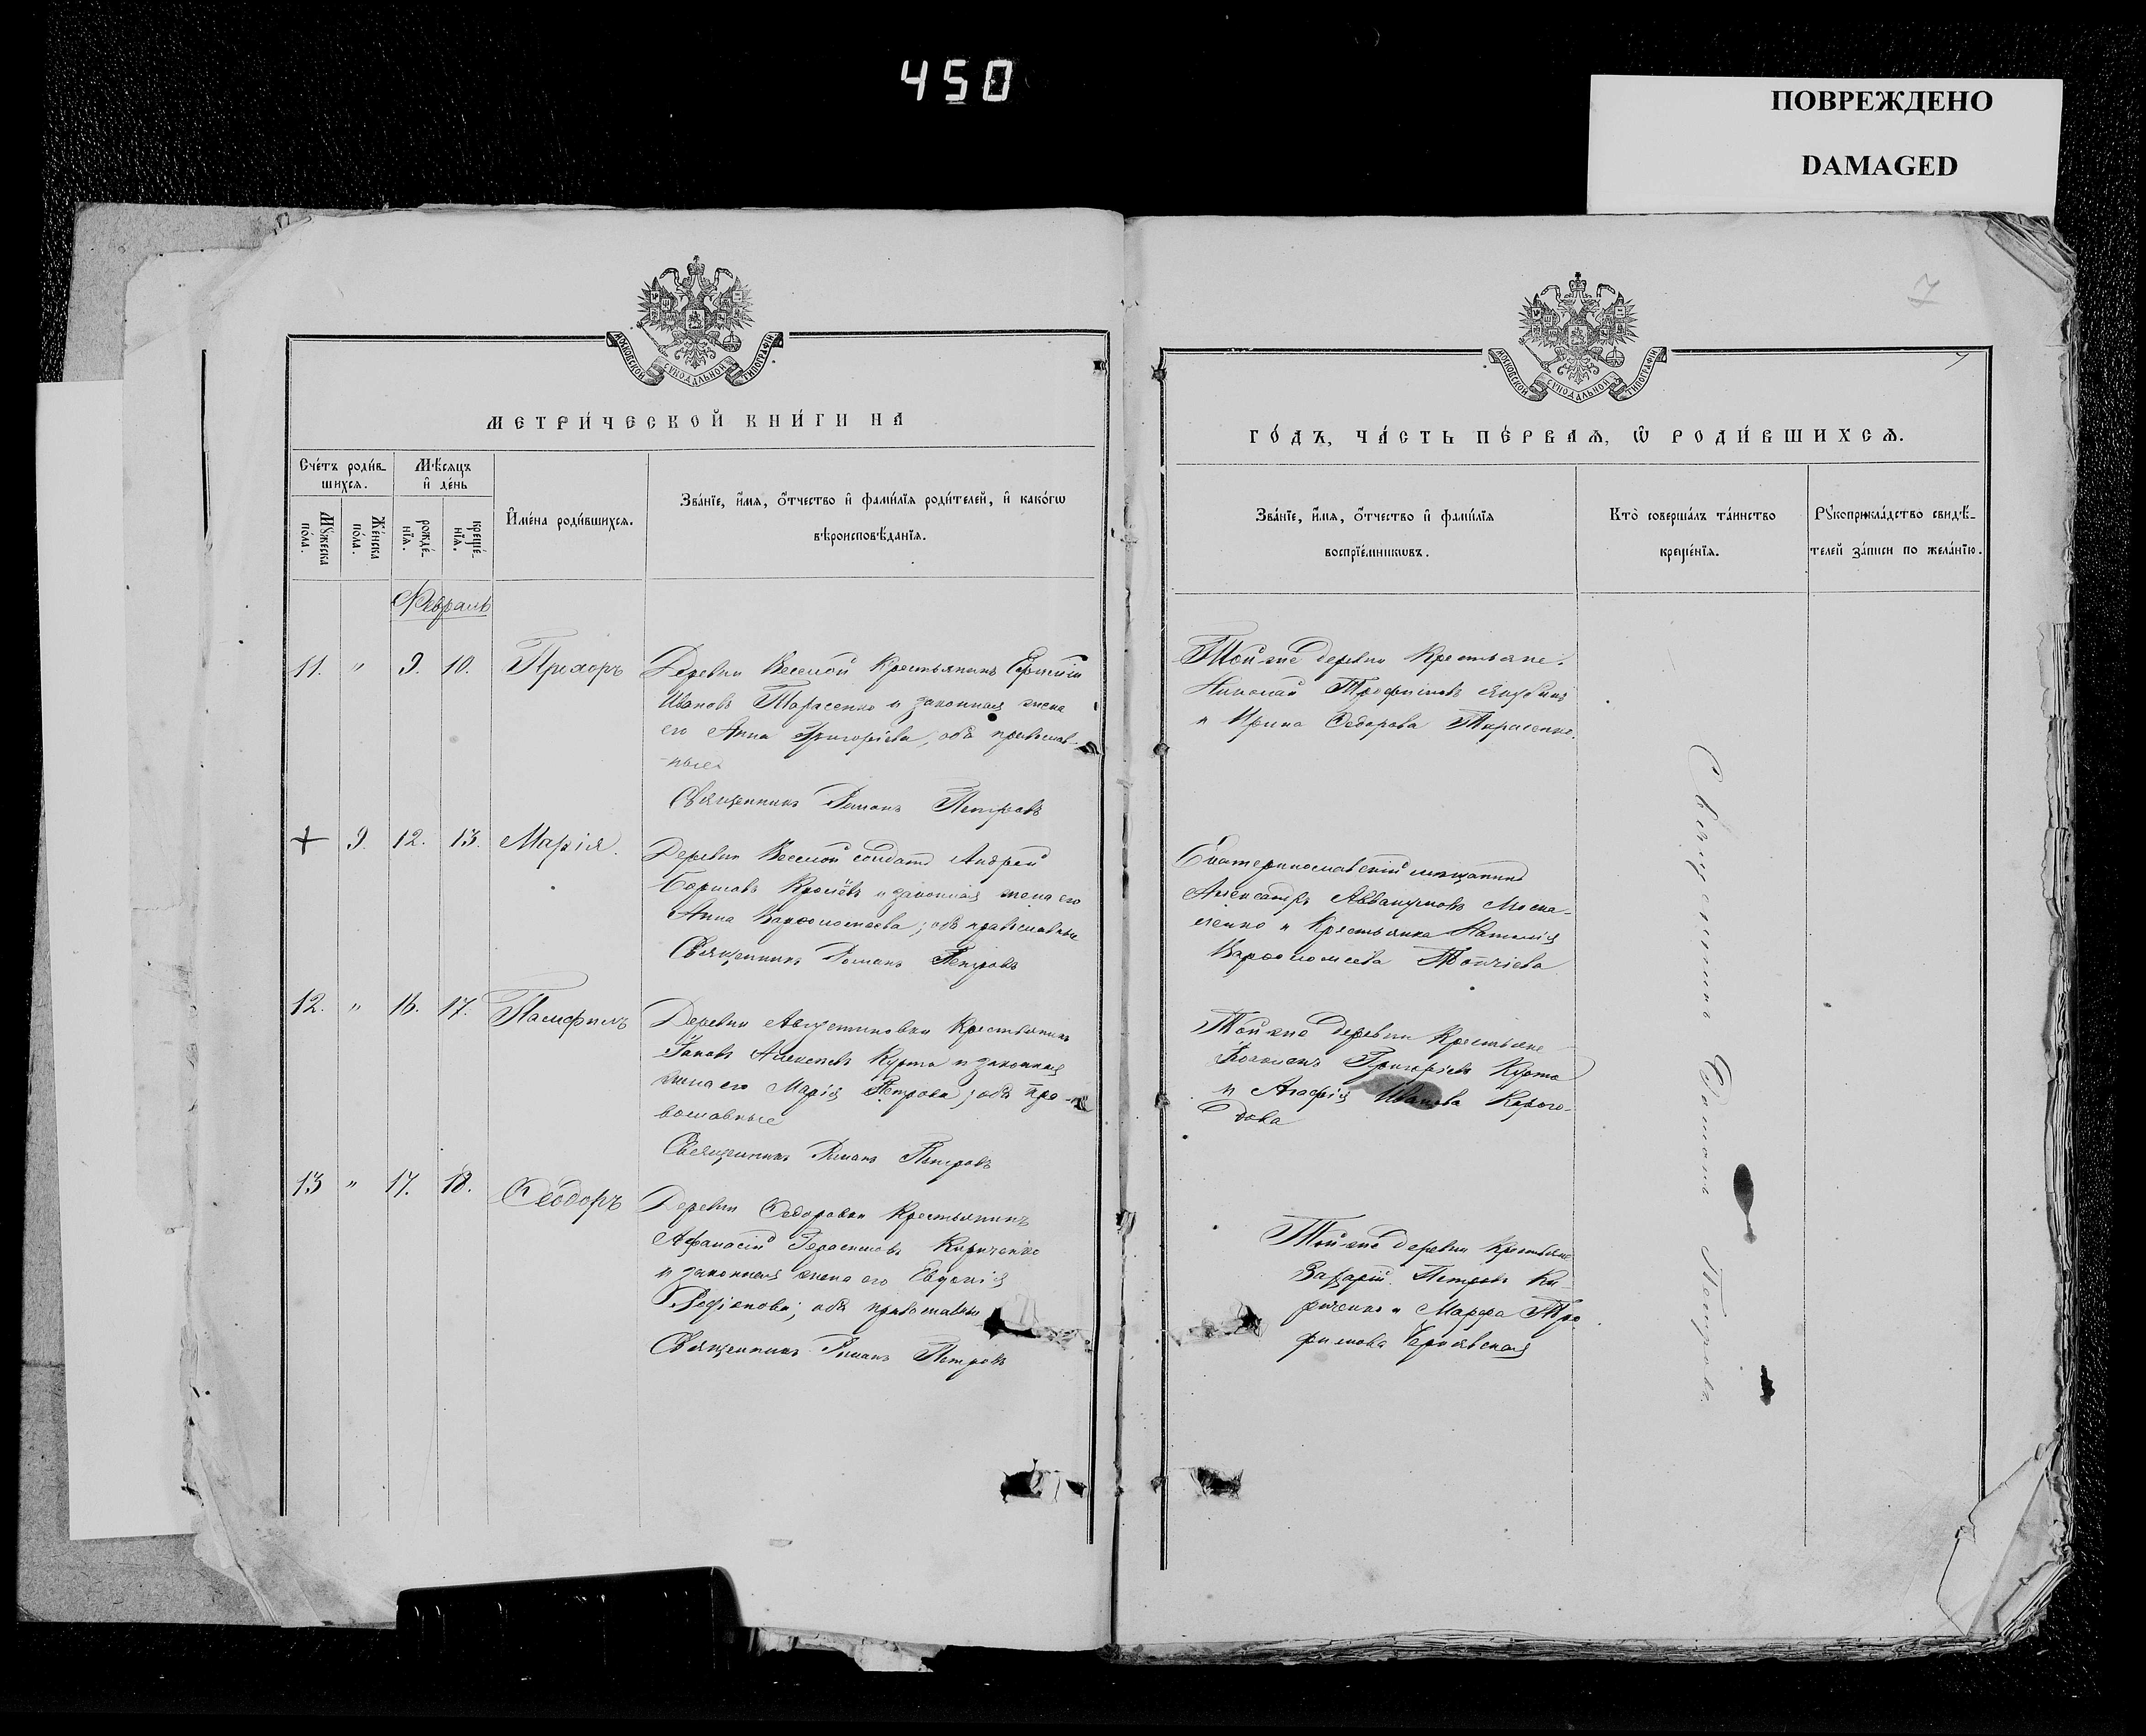 450
ПОВРЕЖДЕНО
DAMAGED
7
МОСКОВСКОЙ СѴНОДАЛЬНОЙ ТИПОГРАФІИ
МЕТРИ́ЧЕСКОЙ КНИ́ГИ НА
Сче́тъ роди́в-
шихсѧ.
Мѣ́сѧцъ
и҆ де́нь
Мꙋ́жеска
по́ла.
Же́нска
по́ла.
рожде́-
нїѧ.
креще́-
нїѧ.
И҆мена̀ роди́вшихсѧ.
Зва́нїе, и҆́мѧ, ѻ҆́тчество и҆ фами́лїѧ роди́телей, и҆ како́гѡ
вѣроисповѣ́данїѧ.
Февраль
11. " 9. 10. Прохоръ
Деревни Веселой крестьянинъ
Ивановъ Тарасенко и законная жена
его Анна Григорьева, оба православ-
ные
Священникъ Романъ Петровъ
9. 12. 13. Марія.
Деревни Веселой солдатъ Андрей
и законная жена его
Анна Варѳоломеева; оба православные
Священникъ Романъ Петровъ
12. " 16. 17. Памфилъ
Деревни Августиновки крестьянинъ
Іаковъ Алексѣевъ Курта и законная
жена его Марія Петрова; оба пра-
вославные
Священникъ Романъ Петровъ
13 " 17. 18. Ѳеодоръ
Деревни Ѳедоровки крестьянинъ
Афанасій Герасимовъ Кириченко
и законная жена его Евдокія
оба православные
Священникъ Романъ Петровъ
МОСКОВСКОЙ СѴНОДАЛЬНОЙ ТИПОГРАФІИ
7
ГО́ДЪ, ЧА́СТЬ ПЕ́РВАѦ, Ѽ РОДИ́ВШИХСѦ.
Зва́нїе, и҆́мѧ, ѻ҆́тчество и҆ фами́лїѧ
воспрїе́мникѡвъ.
Кто̀ соверша́лъ та́инство
креще́нїѧ.
Рꙋкоприкла́дство свидѣ́-
телей за́писи по жела́нїю.
Той же деревни крестьяне:
Николай Трофимовъ
и Ирина Ѳедорова Тарасенко.
Екатеринославскій мѣщанинъ
Александръ Моска-
ленко и крестьянка Наталія
Варѳоломеева
Той же деревни крестьяне
Григорьевъ Курта
и Агафія Иванова Корого-
дова
Той же деревни крестьяне
Захарій Петровъ Ки-
риченко и Марфа Тро-
фимова
Священникъ Романъ Петровъ